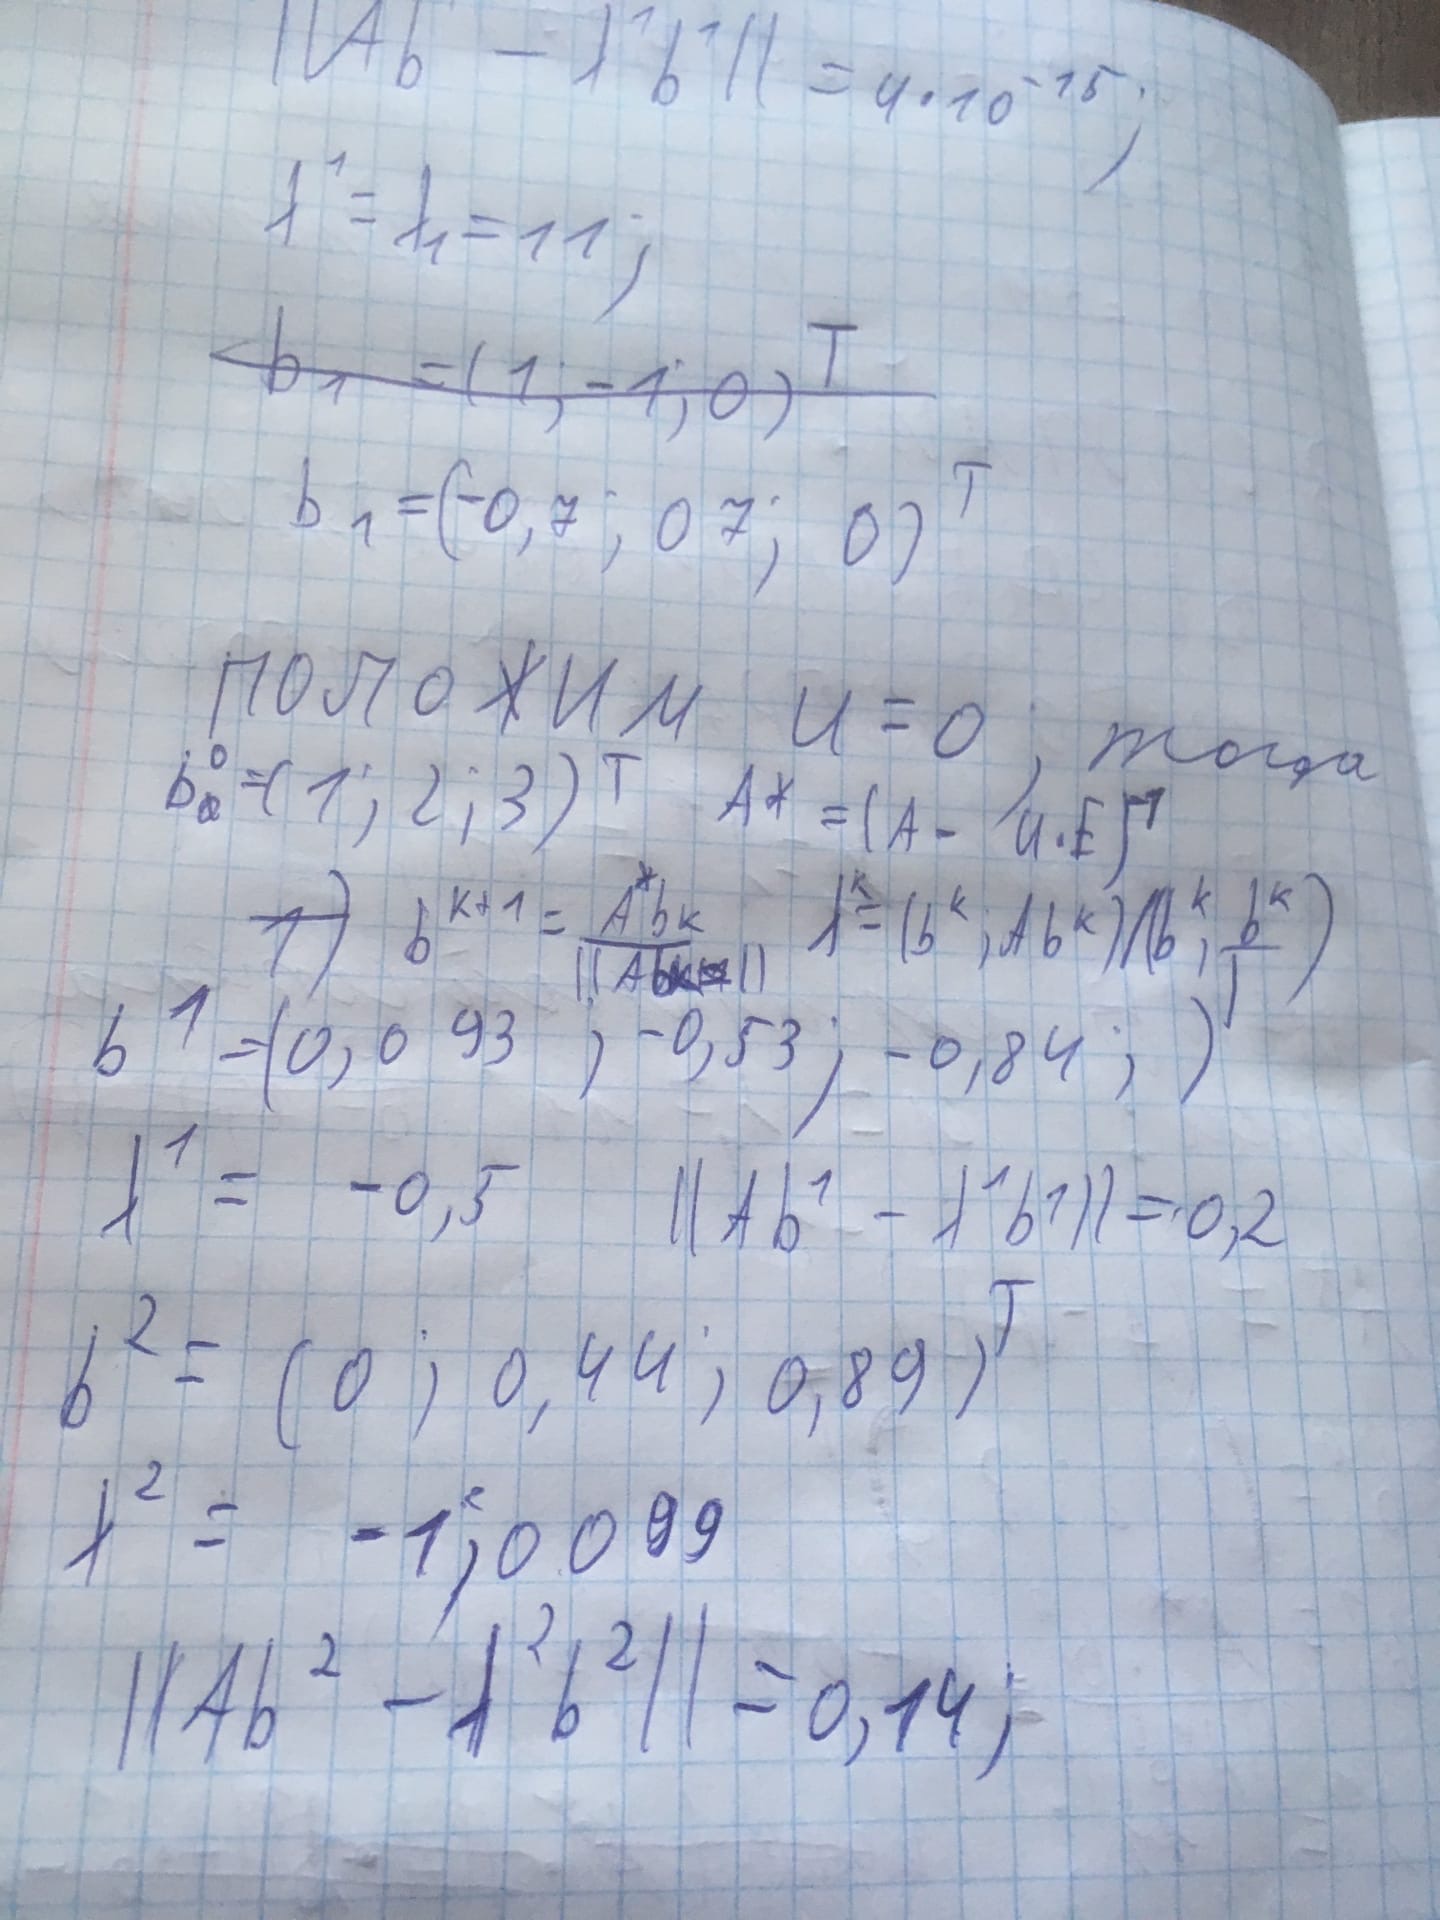 ||Ab - λ¹b¹|| = 4·10⁻¹⁵;
λ¹ = λ₁ = 11;
b₁ = (1; -1; 0)ᵀ
b₁ = (-0,7; 07; 0)ᵀ
ПОЛОЖИМ u = 0; тогда
b⁰ = (1; 2; 3)ᵀ A* = (A - u·E)⁻¹
1) bᵏ⁺¹ = A*bₖ / ||Abₖ|| λᵏ = (bᵏ; Abᵏ)/(bᵏ; bᵏ)
b¹ = (0,093; -0,53; -0,84;)ᵀ
λ¹ = -0,5 ||Ab¹ - λ¹b¹|| = 0,2
b² = (0; 0,44; 0,89)ᵀ
λ² = -1,0099
||Ab² - λ²b²|| = 0,14;